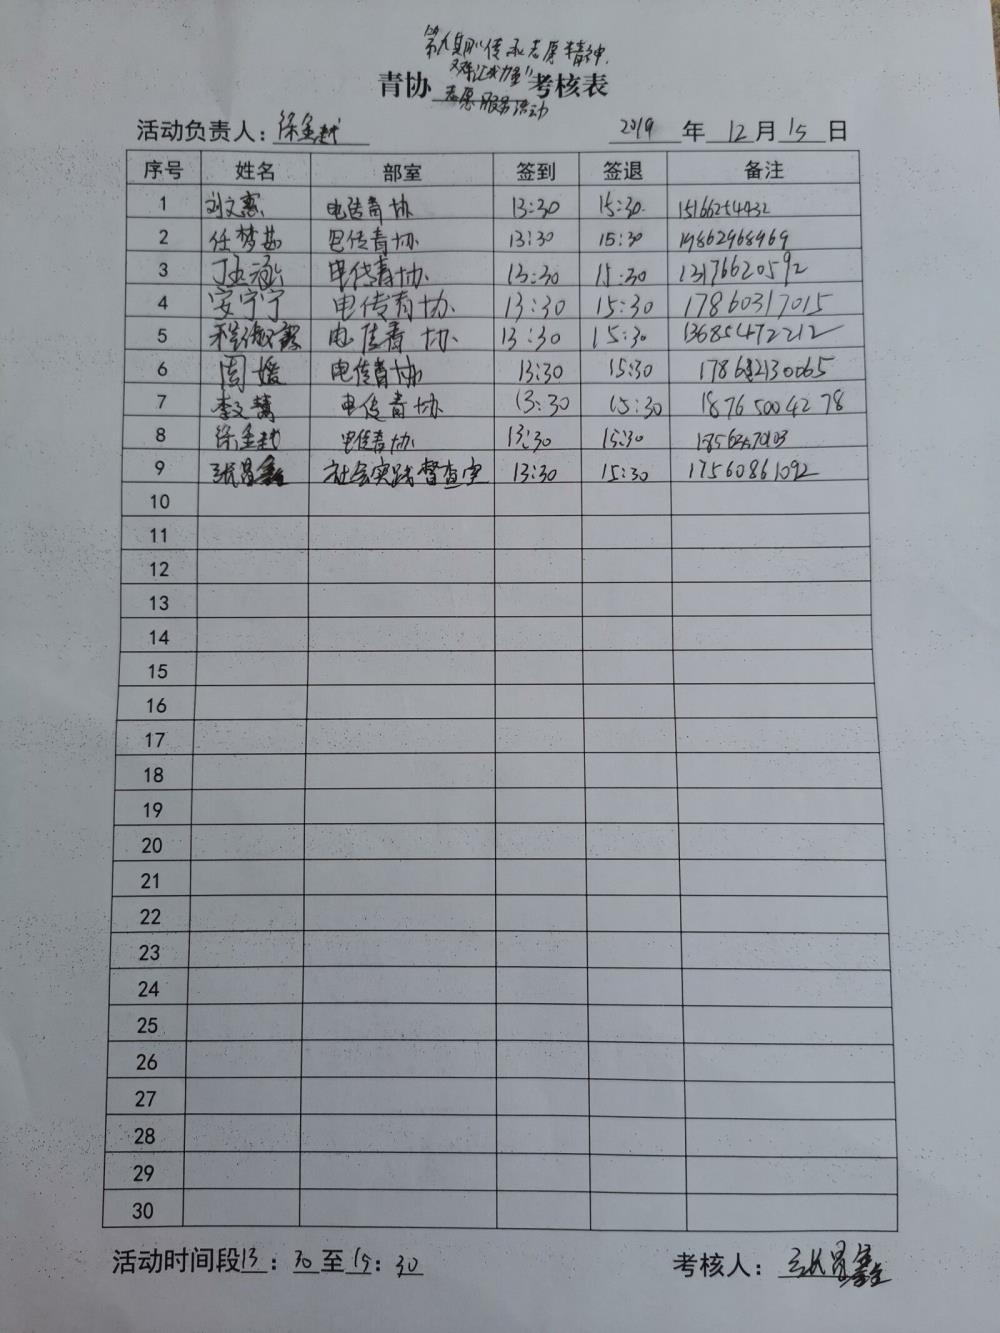 第九期"传承志愿精神,
汇成力量"
青协 志愿服务活动 考核表
活动负责人:徐金越 2019 年 12 月 15 日
序号 姓名 部室 签到 签退 备注
1 刘文惠 电传青协 13:30 15:30
2 任梦茹 电传青协 13:30 15:30 19862968969
3 丁玉涵 电传青协 13:30 15:30 13176620592
4 安宁宁 电传青协 13:30 15:30 17860317015
5 电传青协 13:30 15:30 13685472212
6 周媛 电传青协 13:30 15:30
7 李文慧 电传青协 13:30 15:30 18765004278
8 徐金越 电传青协 13:30 15:30
9 张昌鑫 社会实践督查室 13:30 15:30 17560861092
10
11
12
13
14
15
16
17
18
19
20
21
22
23
24
25
26
27
28
29
30
活动时间段 13:30 至 15:30 考核人:张昌鑫